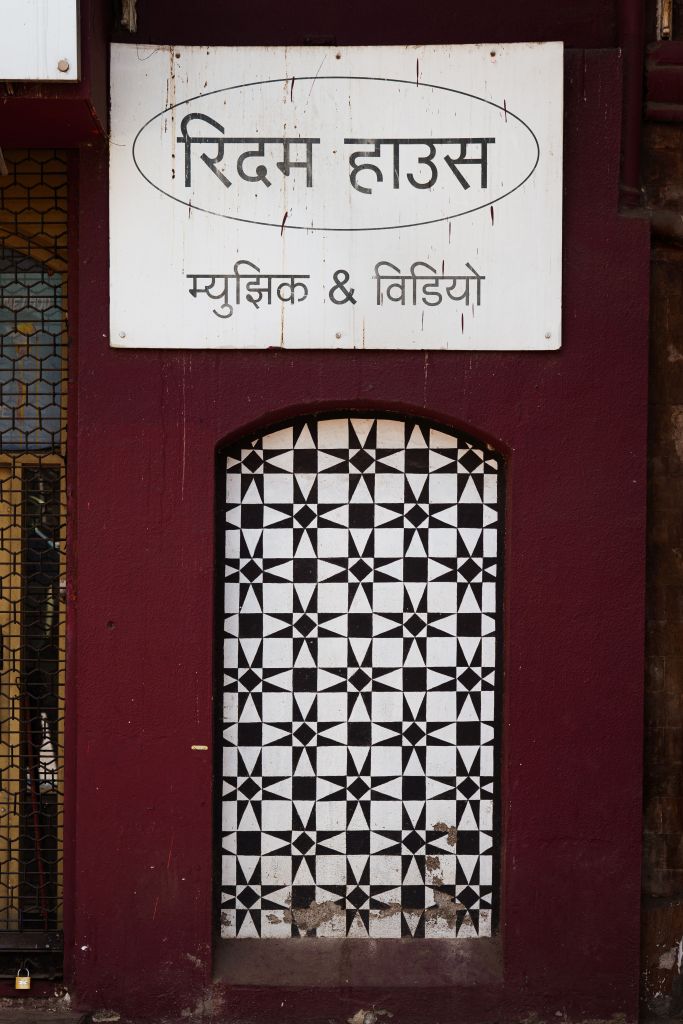 रिदम हाउस
म्युझिक & विडियो